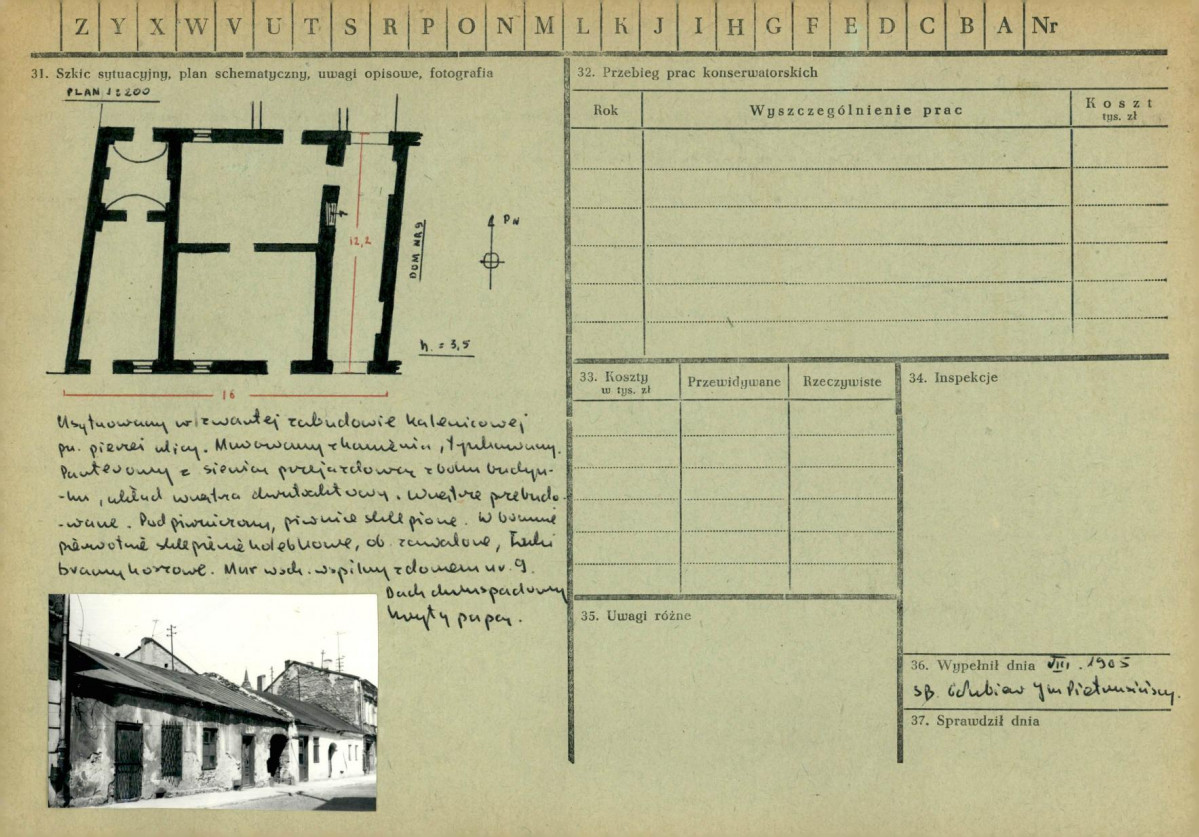 Z Y X W V U T S R P O N M L K J I H G F E D C B A Nr
31. Szkic sytuacyjny, plan schematyczny, uwagi opisowe, fotografia
PLAN 1:200
12,2
DOM NR 9
PN
h. = 3,5
16
Usytuowany w zwartej zabudowie kalenicowej
pn. pierzei ulicy. Murowany z kamienia, tynkowany.
Parterowy z sienią przejazdową z boku budyn-
-ku, układ wnętrza dwutraktowy. Wnętrze przebudo-
-wane. Podpiwniczony, piwnice sklepione. W bramie
pierwotnie sklepienie kolebkowe, ob. zawalone, łuki
bramy koszowe. Mur wsch. wspólny z domem nr. 9.
Dach dwuspadowy
kryty papą.
32. Przebieg prac konserwatorskich
Rok
Wyszczególnienie prac
Koszt
tys. zł
33. Koszty
w tys. zł
Przewidywane
Rzeczywiste
34. Inspekcje
35. Uwagi różne
36. Wypełnił dnia VIII. 1985
37. Sprawdził dnia